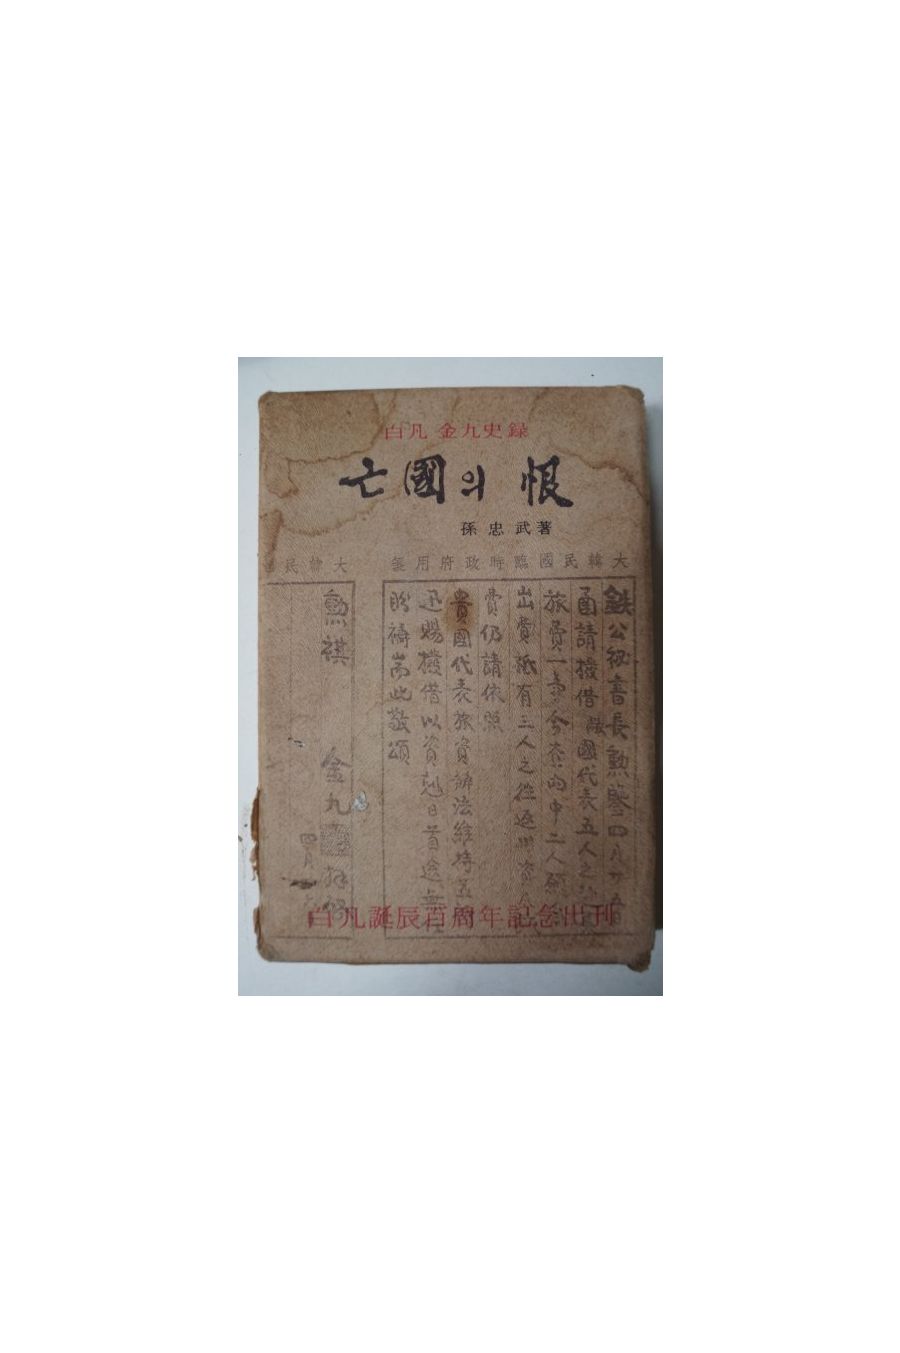 白凡 金九史録
亡國의 恨
孫忠武著
大韓民國臨時政府用箋
鉄公秘書長勲鑒四月
函請撥借敝國代表五人之
旅費一事今奈內中二人
出費祗有三人之往返川資
費仍請依照
貴國代表旅資辦法維持五
迅賜撥借以資剋日首途無任
盼禱耑此敬頌
大韓民
勲祺 金九 拜啓
四月
白凡誕辰百周年記念出刊